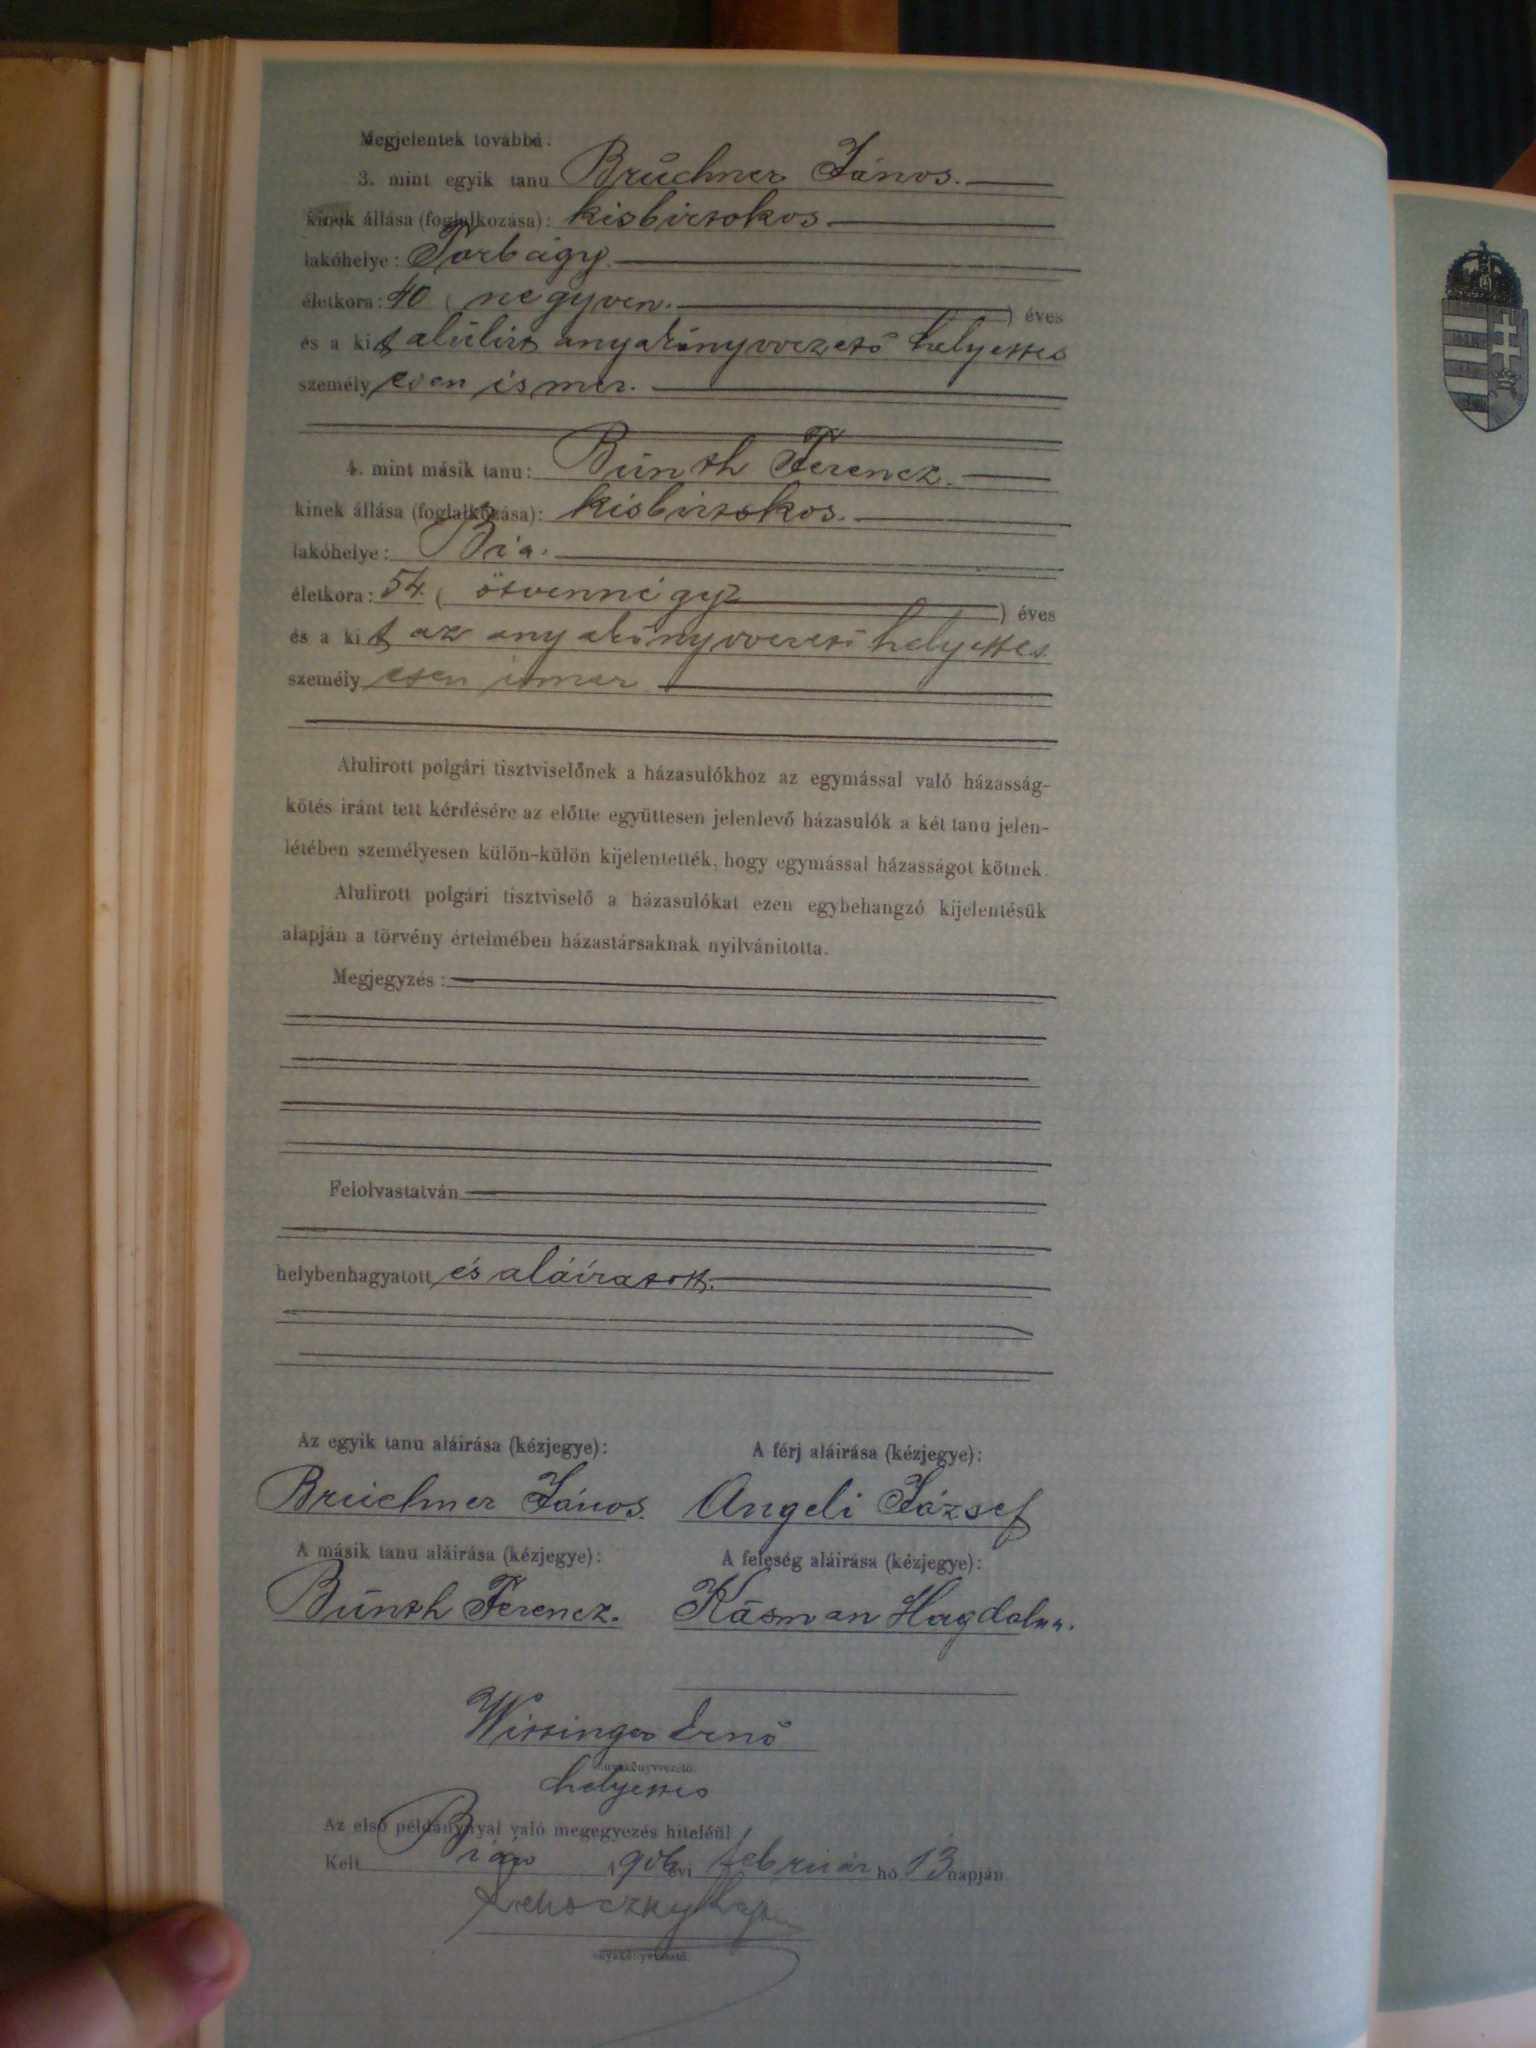 Megjelentek továbbá.
3. mint egyik tanu Brüchner János.
kinek állása (foglalkozása): kisbirtokos
lakóhelye: Torbágy.
életkora: 40 (negyven.) éves
és a kit alúlirt anyakönyvvezető helyettes
személyesen ismer.
4. mint másik tanu: Bünth Ferencz.
kinek állása (foglalkozása): kisbirtokos.
lakóhelye: Bia.
életkora: 54. (ötvennégy) éves
és a kit az anyakönyvvezető helyettes
személyesen ismer
Alulirott polgári tisztviselőnek a házasulókhoz az egymással való házasság-
kötés iránt tett kérdésére az előtte együttesen jelenlevő házasulók a két tanu jelen-
létében személyesen külön-külön kijelentették, hogy egymással házasságot kötnek.
Alulirott polgári tisztviselő a házasulókat ezen egybehangzó kijelentésük
alapján a törvény értelmében házastársaknak nyilvánitotta.
Megjegyzés:
Felolvastatván
helybenhagyatott és aláiratott.
Az egyik tanu aláirása (kézjegye): A férj aláirása (kézjegye):
Brüchner János. Angeli József
A másik tanu aláirása (kézjegye): A feleség aláirása (kézjegye):
Bünth Ferencz. Käsman Magdolna.
Wissinger Ernő
anyakönyvvezető.
helyettes
Az első példánynyal való megegyezés hiteléül
Kelt Bián 1906 évi február hó 13 napján
anyakönyvvezető.